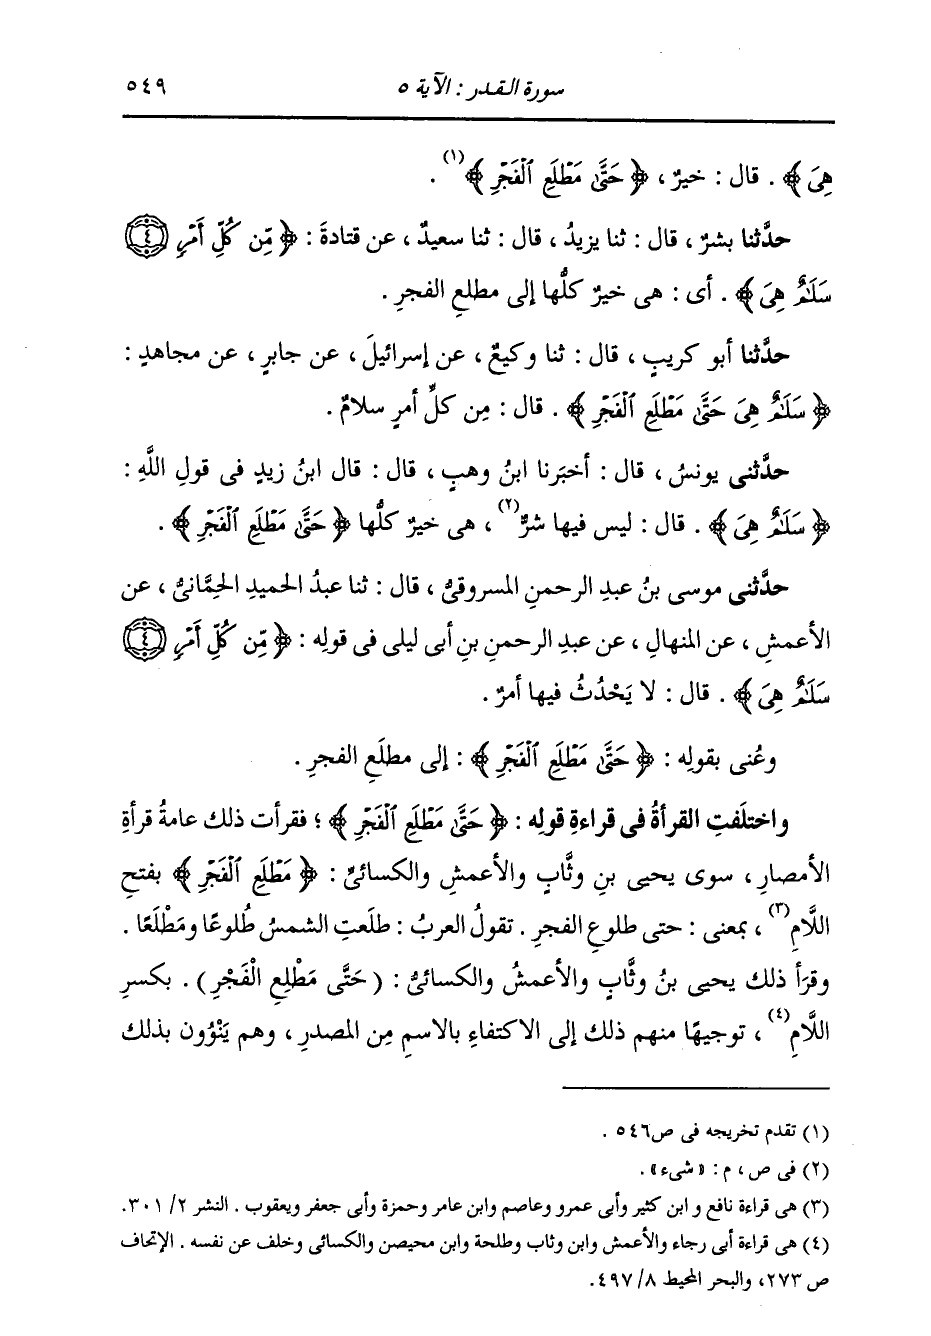 سورة القدر : الآية ٥
٥٤٩
هِىَ ﴾ . قال : خيرٌ ، ﴿ حَتَّىٰ مَطْلَعِ ٱلْفَجْرِ ﴾(١) .
حدَّثنا بشرٌ ، قال : ثنا يزيدُ ، قال : ثنا سعيدٌ ، عن قتادةَ : ﴿ مِّن كُلِّ أَمْرٍ ﴿٤﴾
سَلَـٰمٌ هِىَ ﴾ . أى : هى خيرٌ كلُّها إلى مطلعِ الفجرِ .
حدَّثنا أبو كريبٍ ، قال : ثنا وكيعٌ ، عن إسرائيلَ ، عن جابرٍ ، عن مجاهدٍ :
﴿ سَلَـٰمٌ هِىَ حَتَّىٰ مَطْلَعِ ٱلْفَجْرِ ﴾ . قال : مِن كلِّ أمرٍ سلامٌ .
حدَّثنى يونسُ ، قال : أخبَرنا ابنُ وهبٍ ، قال : قال ابنُ زيدٍ فى قولِ اللَّهِ :
﴿ سَلَـٰمٌ هِىَ ﴾ . قال : ليس فيها شرٌّ(٢) ، هى خيرٌ كلُّها ﴿ حَتَّىٰ مَطْلَعِ ٱلْفَجْرِ ﴾ .
حدَّثنى موسى بنُ عبدِ الرحمنِ المسروقىُّ ، قال : ثنا عبدُ الحميدِ الحِمَّانىُّ ، عن
الأعمشِ ، عن المنهالِ ، عن عبدِ الرحمنِ بنِ أبى ليلى فى قولِه : ﴿ مِّن كُلِّ أَمْرٍ ﴿٤﴾
سَلَـٰمٌ هِىَ ﴾ . قال : لا يَحْدُثُ فيها أمرٌ .
وعُنى بقولِه : ﴿ حَتَّىٰ مَطْلَعِ ٱلْفَجْرِ ﴾ : إلى مطلَعِ الفجرِ .
واختلَفتِ القرأةُ فى قراءةِ قولِه : ﴿ حَتَّىٰ مَطْلَعِ ٱلْفَجْرِ ﴾ ؛ فقرأت ذلك عامةُ قرأةِ
الأمصارِ ، سوى يحيى بنِ وثَّابٍ والأعمشِ والكسائىِّ : ﴿ مَطْلَعِ ٱلْفَجْرِ ﴾ بفتحِ
اللَّامِ(٣) ، بمعنى : حتى طلوعِ الفجرِ . تقولُ العربُ : طلَعتِ الشمسُ طُلوعًا ومَطْلَعًا .
وقرَأ ذلك يحيى بنُ وثَّابٍ والأعمشُ والكسائىُّ : ( حَتَّى مَطْلِعِ الْفَجْرِ ) . بكسرِ
اللَّامِ(٤) ، توجيهًا منهم ذلك إلى الاكتفاءِ بالاسمِ مِن المصدرِ ، وهم يَنْوُون بذلك
(١) تقدم تخريجه فى ص٥٤٦ .
(٢) فى ص ، م : « شىء» .
(٣) هى قراءة نافع و ابن كثير وأبى عمرو وعاصم وابن عامر وحمزة وأبى جعفر ويعقوب . النشر ٢/ ٣٠١.
(٤) هى قراءة أبى رجاء والأعمش وابن وثاب وطلحة وابن محيصن والكسائى وخلف عن نفسه . الإتحاف
ص ٢٧٣، والبحر المحيط ٨/ ٤٩٧.